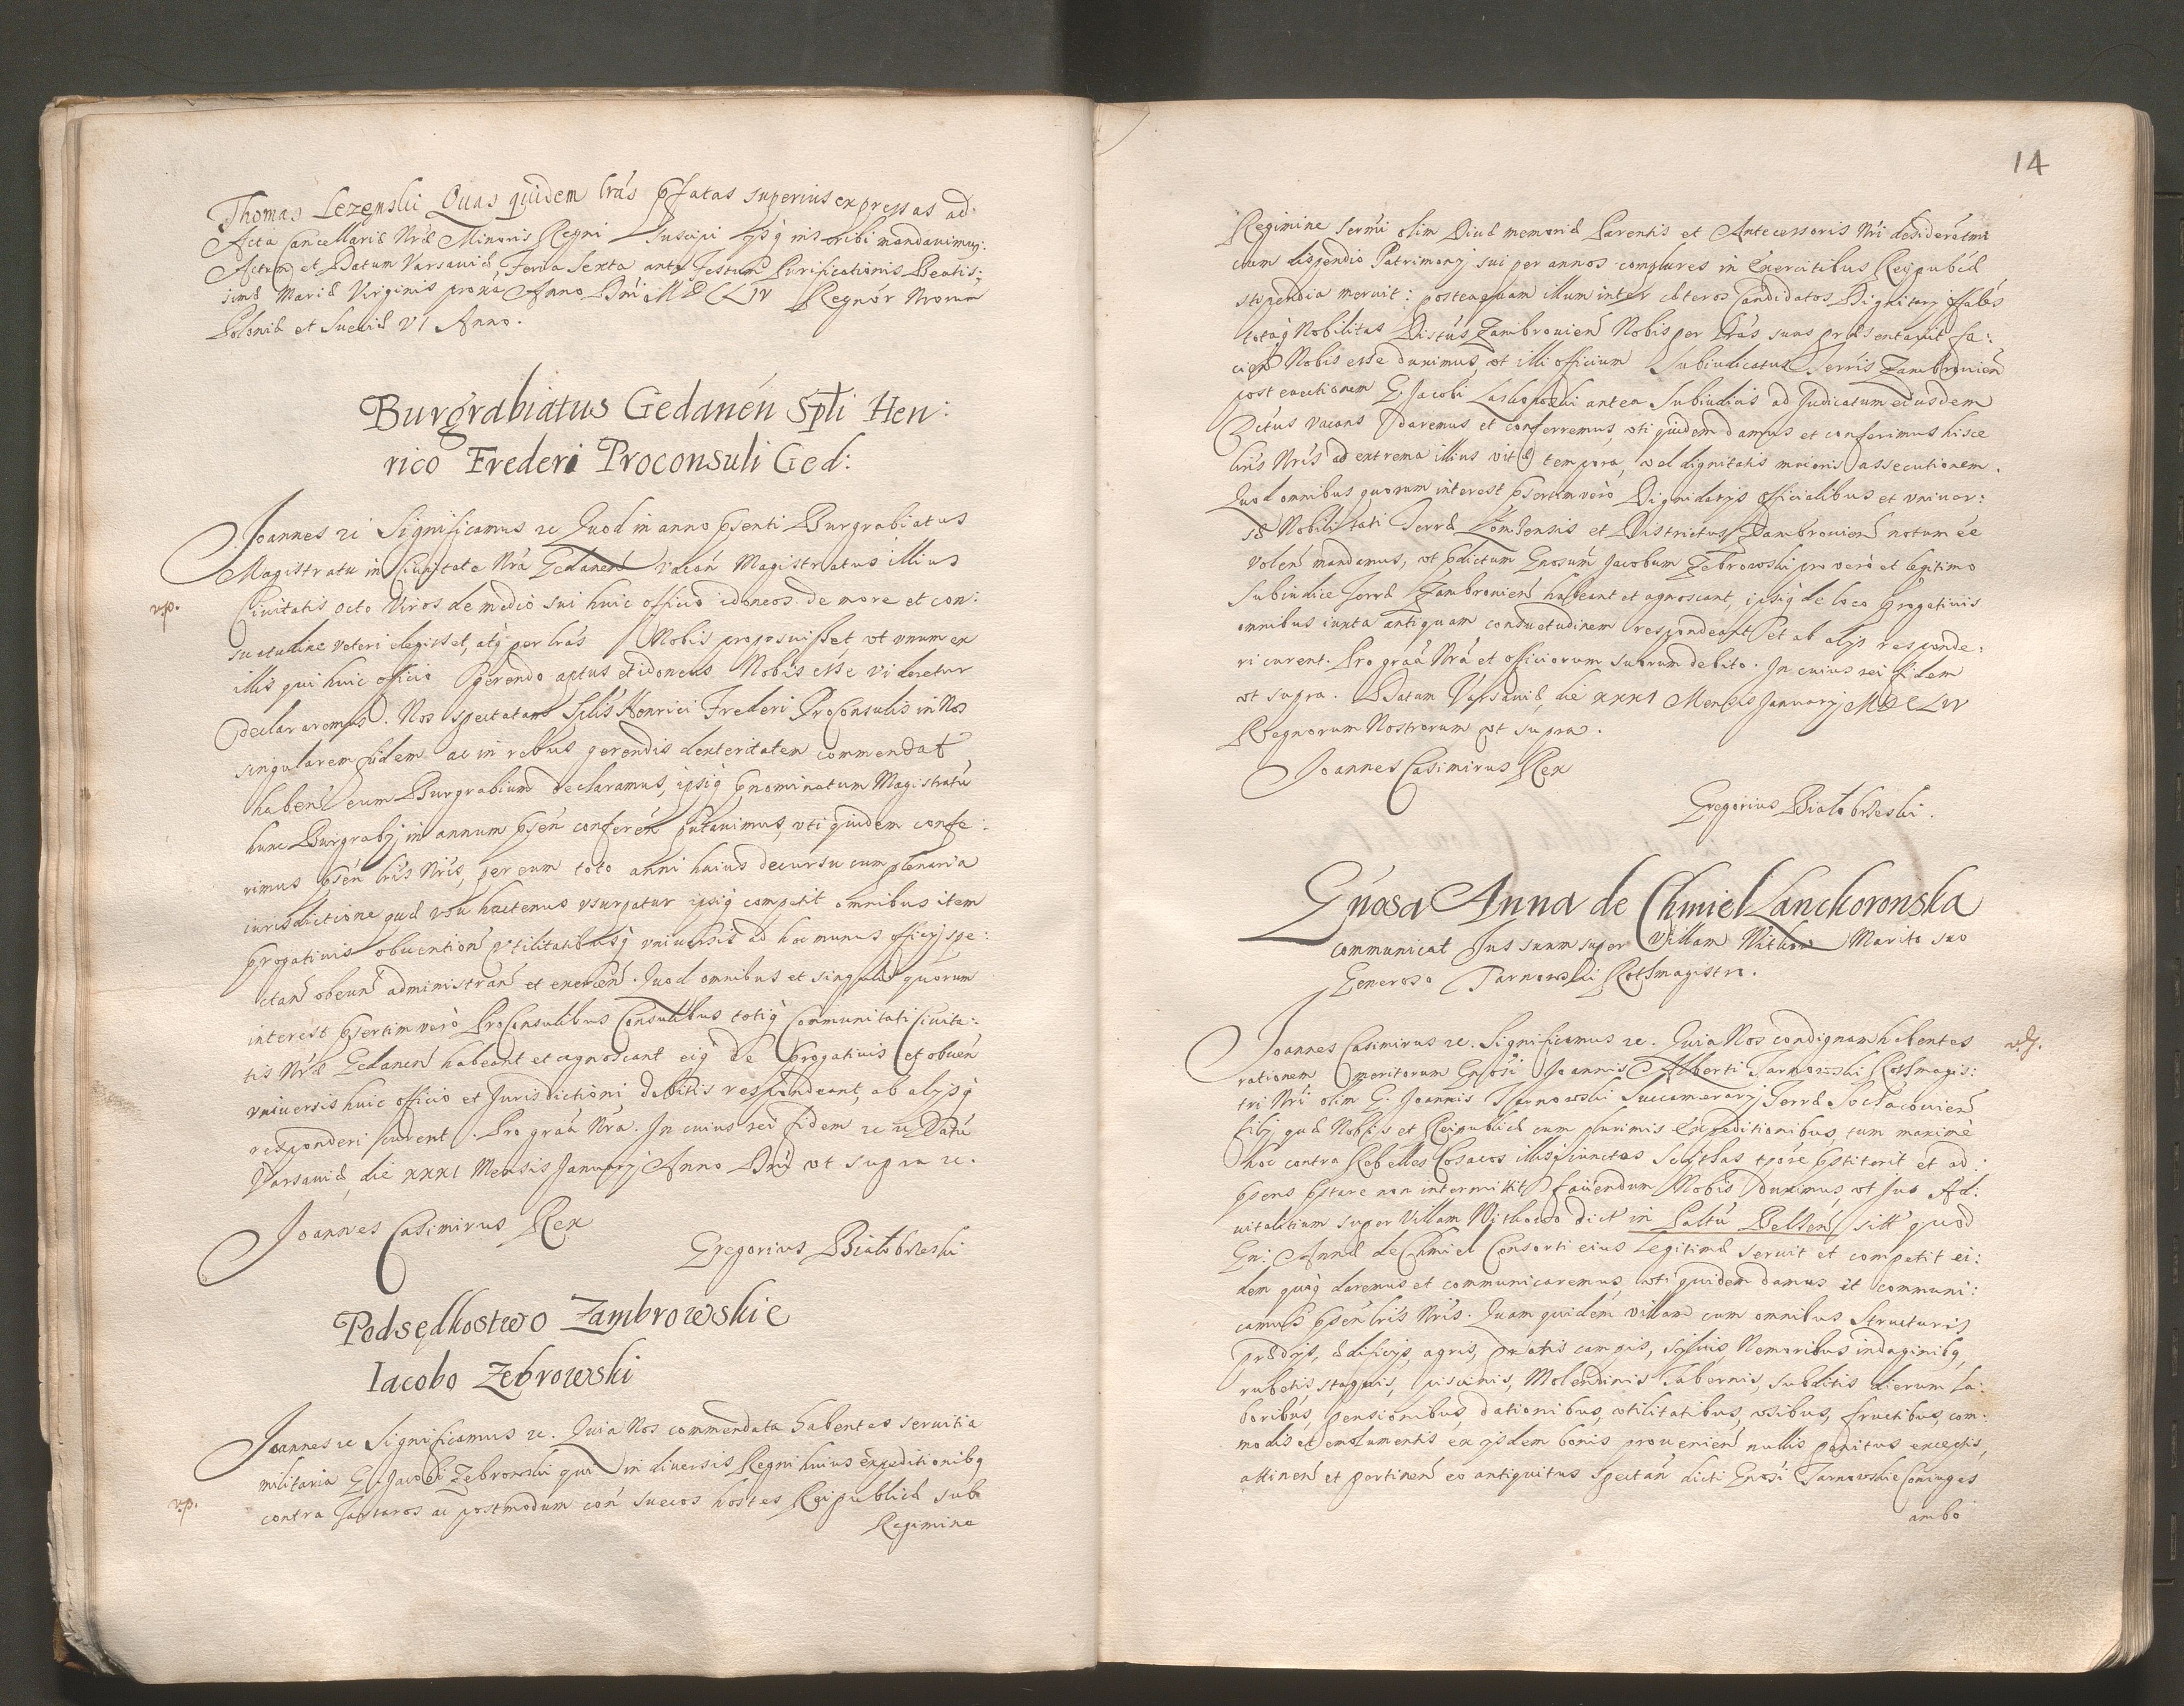 Thomas Lezenski Quas quidem lras pfatas superius expressas ad
Acta Cancellariæ Nræ Minoris Regni Suscipi ijsq inscribi mandauimus:
Actum et Datum Varsauiæ, Feria Sexta ante Festum Purificationis Beatis:
simæ Mariæ Virginis proxa Anno Dni MDCLIV Regnor Nrorum
Poloniæ et Sueciæ VI Anno.
Burgrabiatus Gedanen Spli Hen:
rico Frederi Proconsuli Ged:
Joannes rc Significamus rc Quod in anno psenti Burgrabiatus
Magistratu in Ciuitate Nra Gedanen vacan Magistratus illius
vp.
Ciuitatis octo Viros de medio sui huic officio idoneos de more et con:
suetudine veteri elegisset, atq per lras Nobis proposuisset, vt vnum ex
illis qui huic officio gerendo aptus et idoneus Nobis esse videretur
declararemus. Nos spectatam Splis Henrici Frederi ProConsulis in Nos
singularem fidem ac in rebus gerendis dexteritatem commendat
haben eum Burgrabium declaramus, ipsiq pnominatum Magistratu
hunc Burgrabij in annum psen conferen putauimus, vti quidem confe:
rimus psen lris Nris, per eum toto anni huius decursu cum plenaria
iurisdictione quæ vsu hactenus vsurpatur ipsiq competit omnibus item
progatiuis obuention vtilitatibusq vniuersis ad hoc munus officij spe:
ctan obeun administran et exercen. Quod omnibus et singulis quorum
interest psertim vero ProConsulibus Consulibus totiq Communitati Ciuita:
tis Nræ Gedanen habeant et agnoscant eiq de progatiuis et obuen
vniuersis huic officio et Jurisdictioni debitis respondeant, ab alijsq
responderi curent. Pro graa Nra. In cuius rei fidem rc rc Datu
Varsauiæ, die XXXI Mensis Januarij Anno Dni vt supra rc.
Joannes Casimirus Rex
Gregorius Białobrzeski
Podsędkostwo Zambrowskie
Iacobo Zebrowski
Joannes rc Significamus rc. Quia Nos commendata habentes seruitia
militaria G. Jacobi Zebrowski qui in diuersis Regni huius expeditionibq
vp.
contra Tartaros ac postmodum con Suecos hostes Reipublicæ sub
Regimine
14
Regimine Sermi olim Diuæ memoriæ Parentis et Antecessoris Nri desideratmi
cum dispendio Patrimonij sui per annos complures in Exercitibus Reipublæ
stipendia meruit: posteaquam illum inter cæteros Candidatos Dignitarij
totaq Nobilitas Distus Zambrouien Nobis per lras suas præsentauit fa:
cien Nobis esse duximus, vt illi officium Subiudicatus Terris Zambrouien
post euectionem G. Jacobi antea Subiudicis ad Judicatum eiusdem
Dctus vacans daremus et conferremus, vti quidem damus et conferimus hisce
lris Nris ad extrema illius vitæ tempora, vel dignitatis maioris assecutionem.
Quod omnibus quorum interest psertim vero Dignitarijs officialibus et vniuer:
sæ Nobilitati Terræ Lomzensis et Districtus Zambrouien notum ee
volen mandamus, vt pdictum Gnosum Jacobum Zebrowski pro vero et legitimo
Subiudice Terræ Zambrouien habeant et agnoscant, ipsiq de loco progatiuis
omnibus iuxta antiquam consuetudinem respondeant et ab alijs responde:
ri curent. Pro graa Nra et officiorum suorum debito. In cuius rei fidem
vt supra. Datum Varsauiæ, die XXXI Mensis Januarij MDCLIV
Regnorum Nostrorum vt supra.
Joannes Casimirus Rex
Gregorius Białobrzeski.
Gnosa Anna de Chmiel Lanckoronska
communicat Jus suum super Villam Marito suo
Generoso Tarnowski Rothmagistro.
Joannes Casimirus rc. Significamus rc. Quia Nos condignam habentes
rationem meritorum Gnosi Joannis Alberti Tarnowski Rothmagis:
tri Nri olim G. Joannis Tarnowski Succamerarij Terræ Sochacouien
filij quæ Nobis et Reipublicæ cum plurimis Expeditionibus, tum maxime
hoc contra Rebelles Cosacos illisq iunctos Scithas tpore pstiterit et ad:
psens pstare non intermittit, fauendum Nobis duximus, vt Jus Ad:
uitalitium super Villam dict in Paltu Belsen sitt quod
Gn: Annæ de Chmiel Consorti eius Legitimæ seruit et competit ei:
dem quoq daremus et communicaremus, vti quidem damus et communi:
camus psen lris Nris. Quam quidem villam cum omnibus Structuris
prædijs, ædificijs, agris, pratis campis, syluis, Nemoribus indaginibq,
rubetis, stagnis, piscinis, Molendinis Tabernis, subditis dierum la:
boribus, pensionibus, dationibus, vtilitatibus, vsibus, fructibus, com:
modis et emolumentis ex ijsdem bonis prouenien nullis penitus exceptis,
attinen et pertinen eo antiquitus spectan dicti Gnosi Tarnowskie Coniuges
ambo